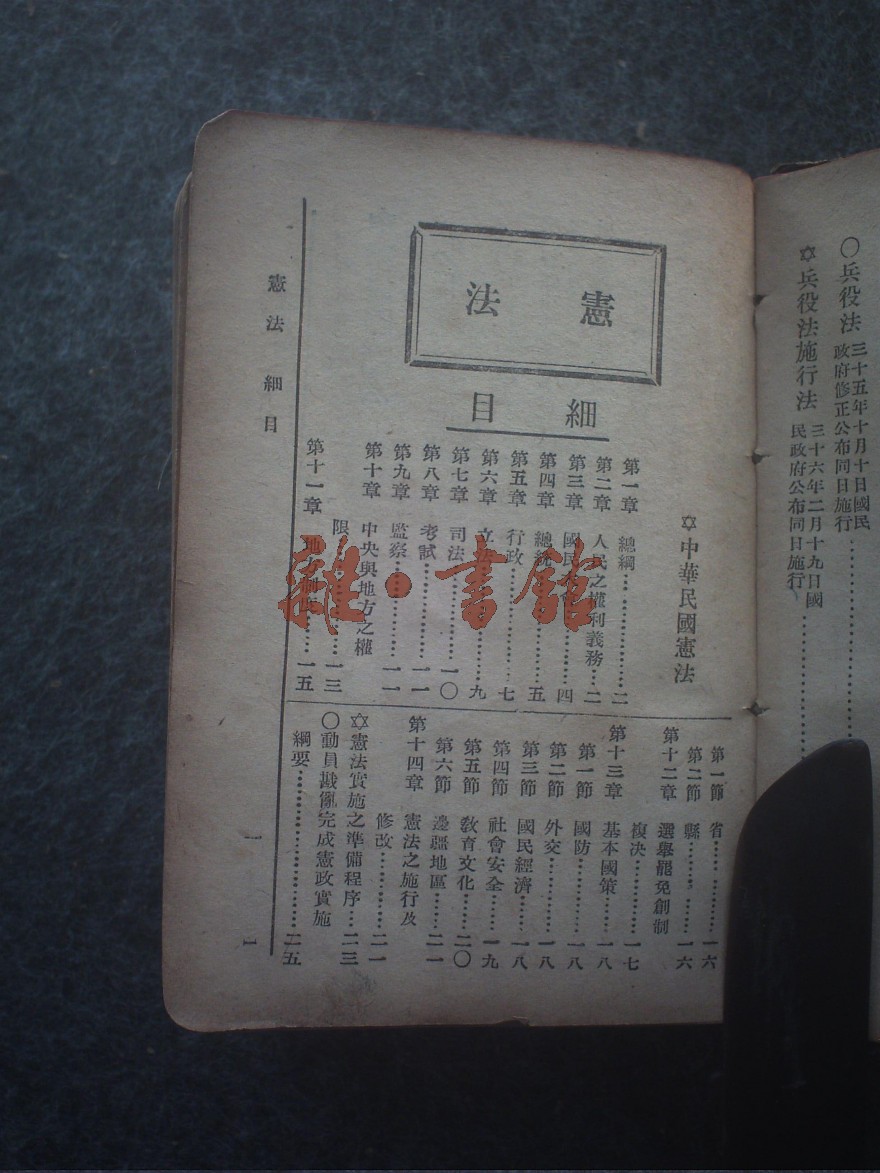 ○兵役法 三十五年十月十日國民
政府修正公布同日施行
✡兵役法施行法 三十六年二月十九日國
民政府公布同日施行
憲法
細目
✡中華民國憲法
第一章 總綱……二
第二章 人民之權利義務……二
第三章 國民大會……四
第四章 總統……五
第五章 行政……七
第六章 立……九
第七章 司法……一〇
第八章 考試……一一
第九章 監察……一一
第十章 中央與地方之權
限……一三
第十一章 地方制度……一五
第一節 省……一六
第二節 縣……一六
第十二章 選舉罷免創制
複決……一七
第十三章 基本國策……一八
第一節 國防……一八
第二節 外交……一八
第三節 國民經濟……一八
第四節 社會安全……一九
第五節 教育文化……二〇
第六節 邊疆地區……二一
第十四章 憲法之施行及
修改……二一
✡憲法實施之準備程序……二三
○動員戡亂完成憲政實施
綱要……二五
憲法 細目
一
1
雜·書館